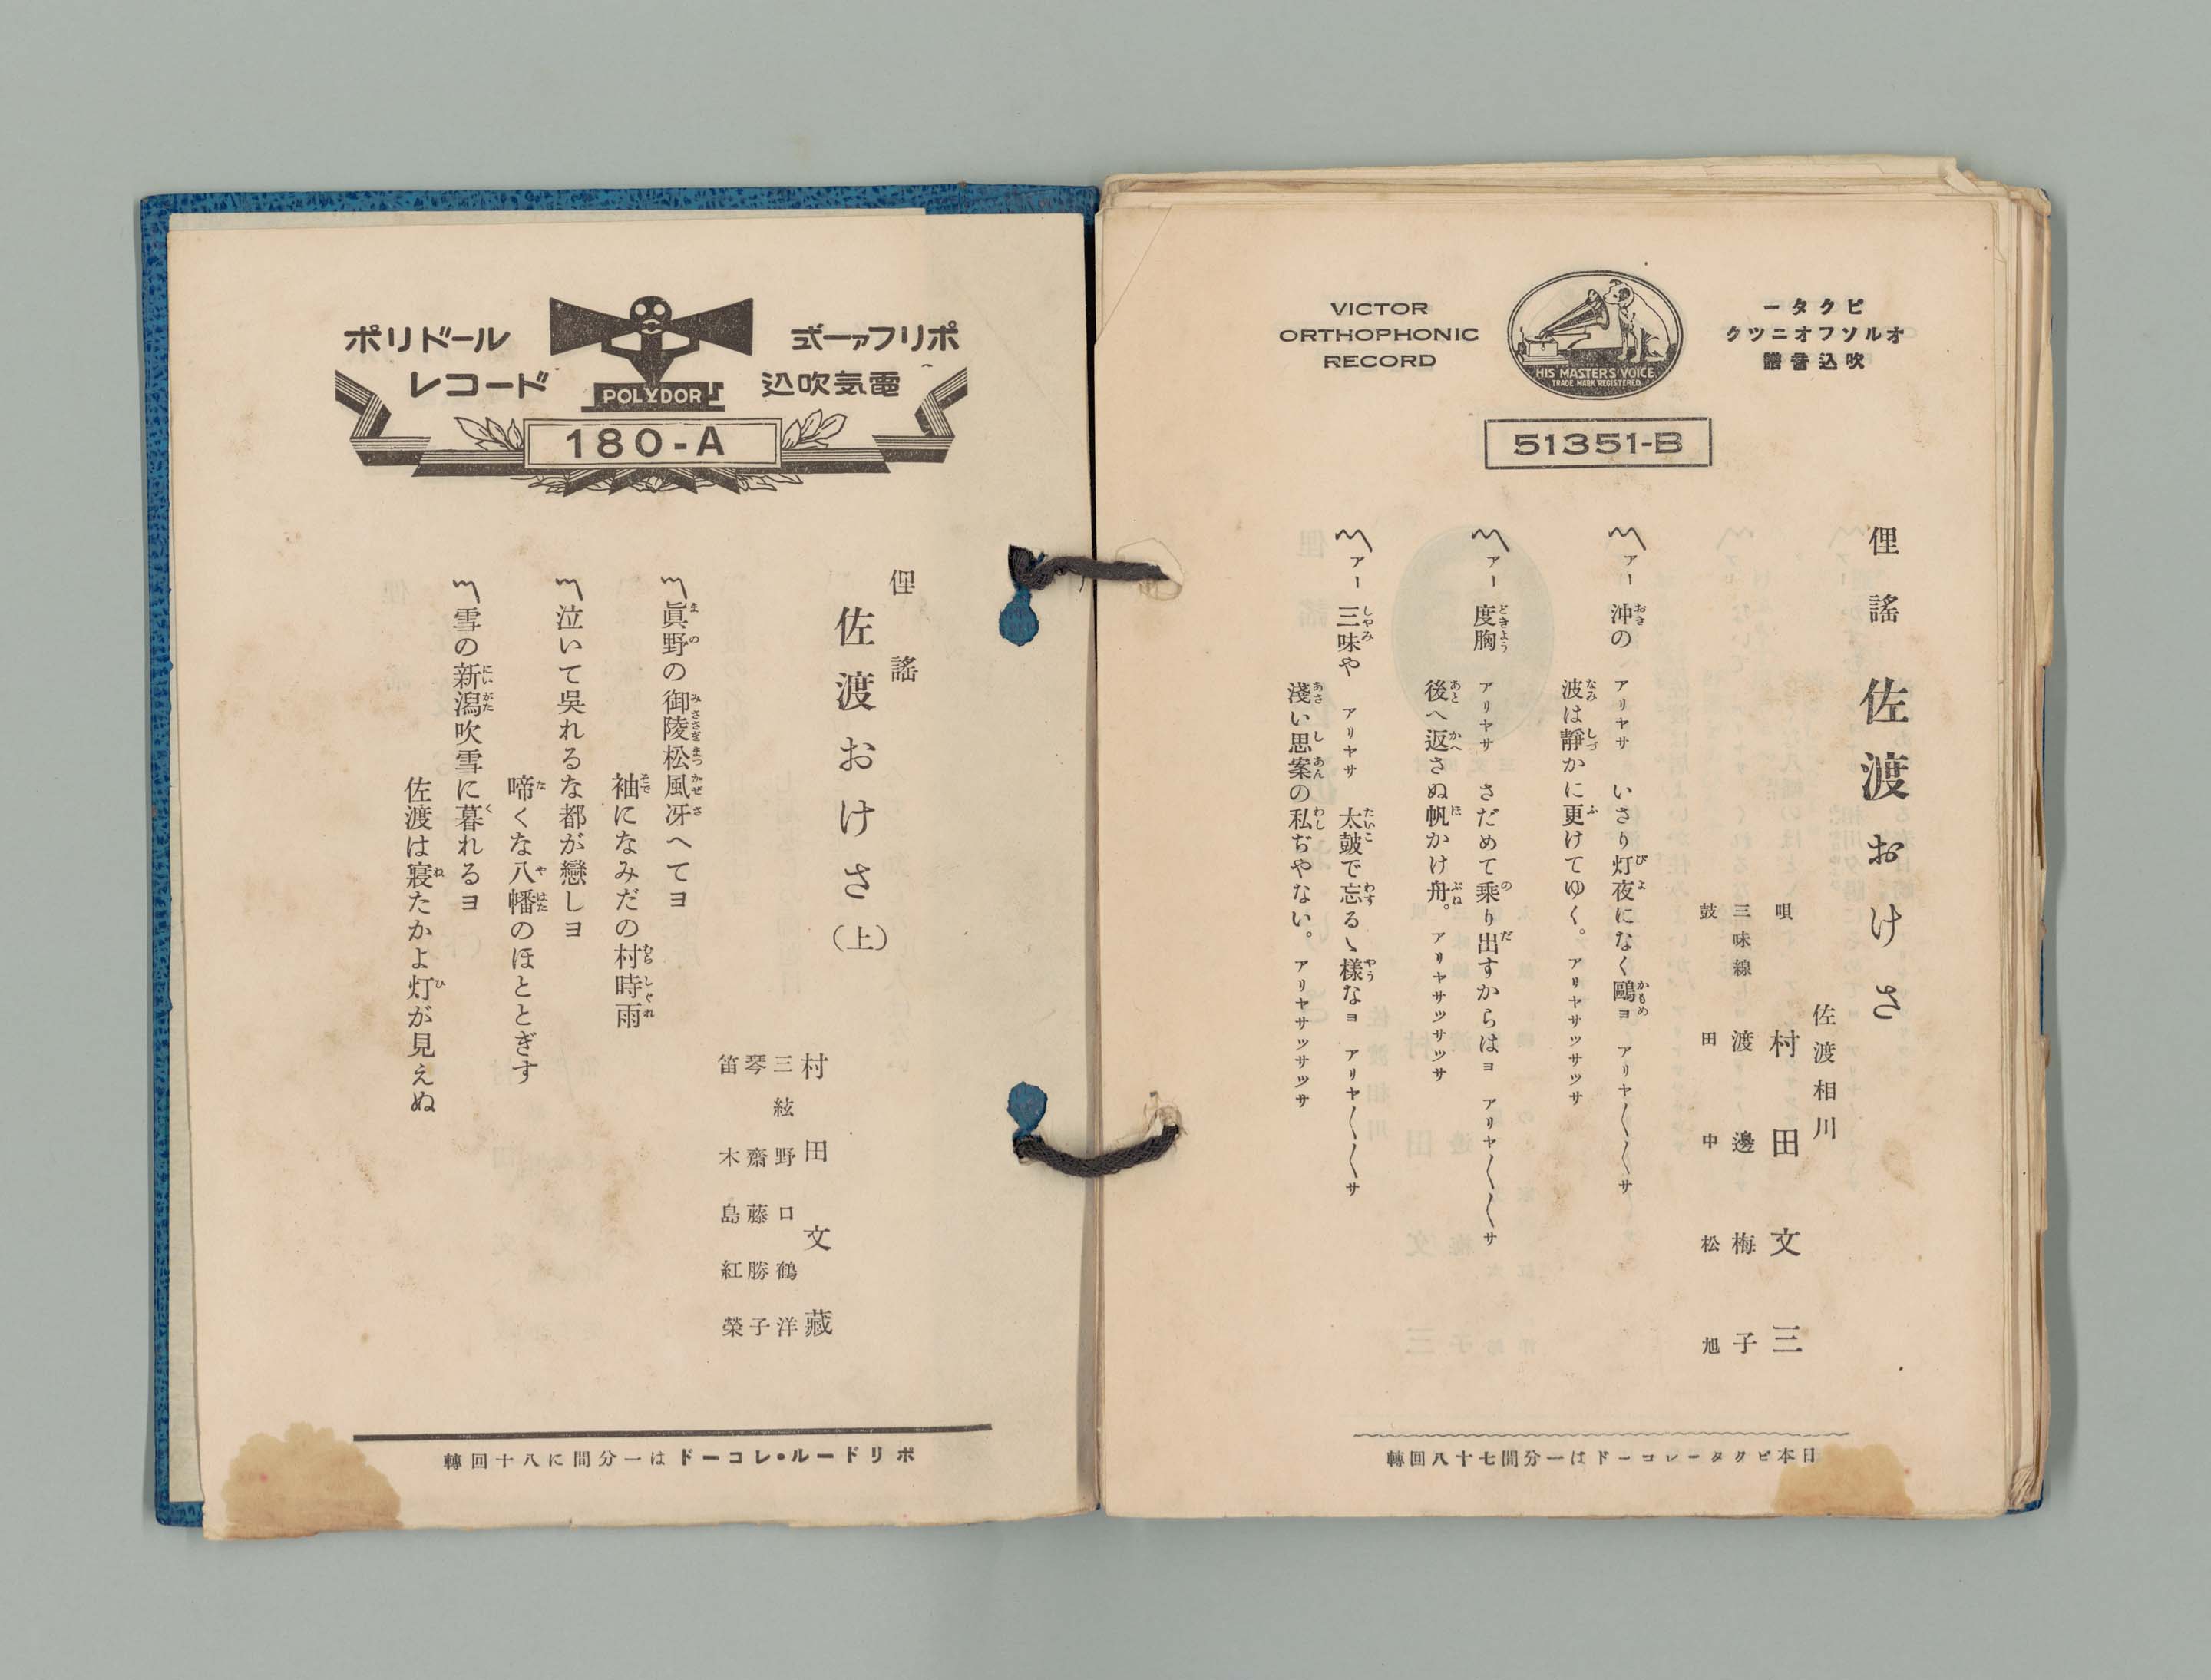 VICTOR
ORTHOPHONIC
RECORD
HIS MASTER'S VOICE
TRADE MARK REGISTERED
ビクター
オルソフオニツク
吹込音譜
51351-B
俚謠 佐渡おけさ
佐渡相川
唄 村田文三
三味線 渡邊梅子
鼓 田中松旭
〽アー 沖の アリヤサ いさり灯夜になく鷗ヨ アリヤ〱〱サ
波は靜かに更けてゆく。アリヤサツサツサ
〽アー 度胸 アリヤサ さだめて乘り出すからはヨ アリヤ〱〱サ
後へ返さぬ帆かけ舟。アリヤサツサツサ
〽アー 三味や アリヤサ 太鼓で忘るゝ樣なヨ アリヤ〱〱サ
淺い思案の私ぢやない。アリヤサツサツサ
日本ビクターレコードは一分間七十八回轉
ポリファー式
電気吹込
ポリドール
レコード
POLYDOR
180-A
俚謠
佐渡おけさ(上)
村田文藏
三絃 野口鶴洋
琴 齋藤勝子
笛 木島紅榮
〽眞野の御陵松風冴へてヨ
袖になみだの村時雨
〽泣いて吳れるな都が戀しヨ
啼くな八幡のほととぎす
〽雪の新潟吹雪に暮れるヨ
佐渡は寢たかよ灯が見えぬ
ポリドール・レコードは一分間に八十回轉